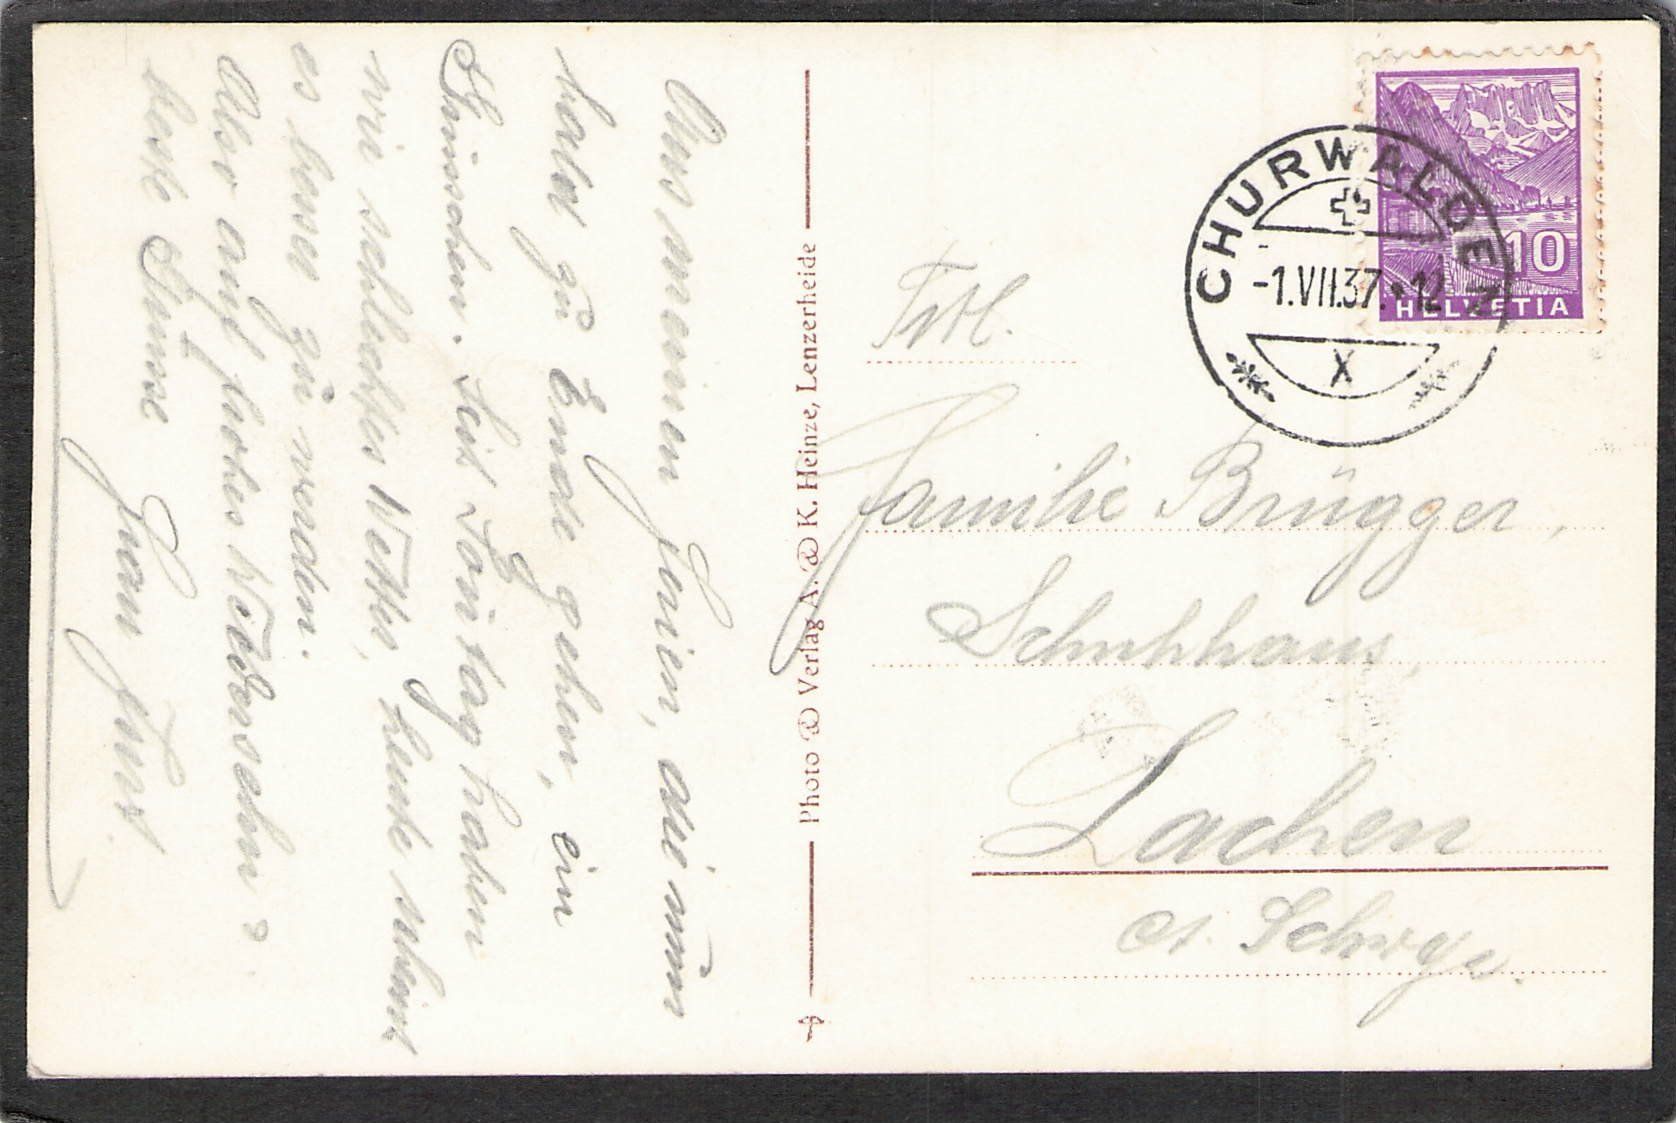 Aus meinen Ferien, die nun
bald zu Ende gehen, ein
Grüsschen. Seit Sonntag haben
wir schlechtes Wetter, heute scheint
es besser zu werden.
Also auf frohes Wiedersehn &
beste Grüsse
Photo Verlag A. K. Heinze, Lenzerheide
CHURWALDEN
-1.VII.37.•12
X
10
HELVETIA
Frl.
Familie Brügger,
Schuhhaus,
Lachen
Ct. Schwyz.